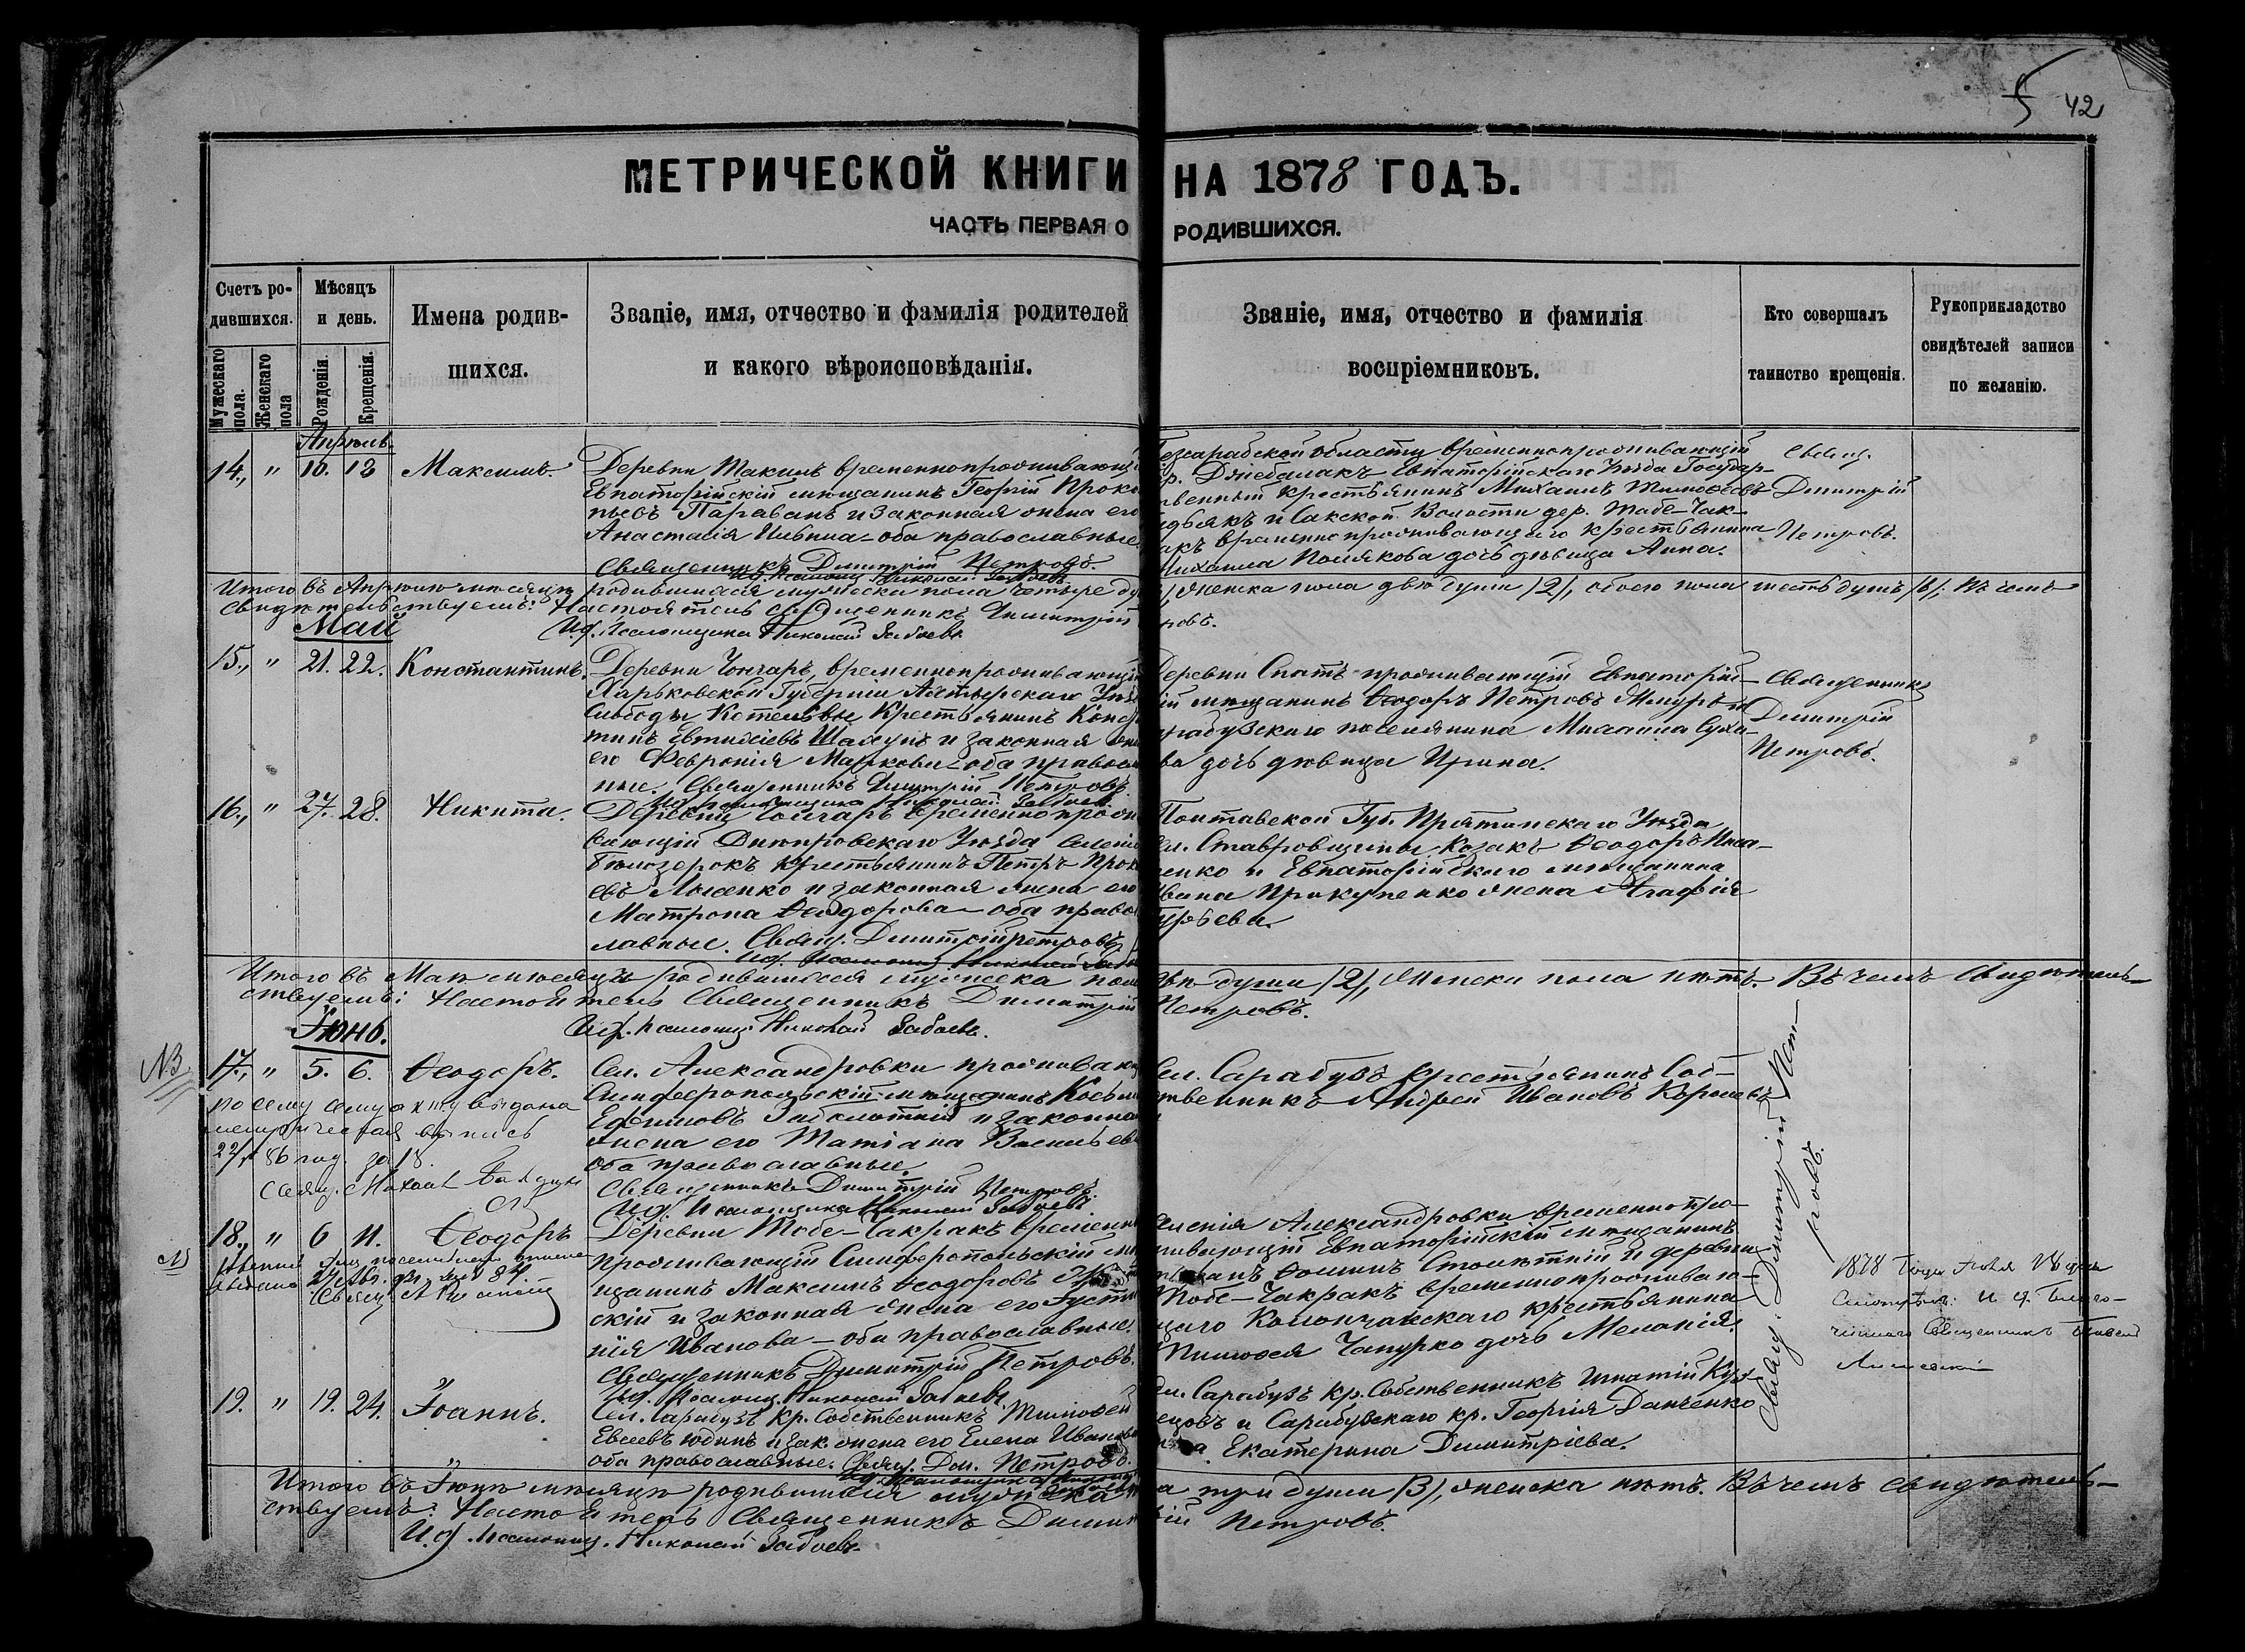 5 42
МЕТРИЧЕСКОЙ КНИГИ НА 1878 ГОДЪ.
ЧАСТЬ ПЕРВАЯ О РОДИВШИХСЯ.
Счетъ родившихся.
Мужескаго пола.
Женскаго пола
Мѣсяцъ и день.
Рожденія.
Крещенія.
Имена родившихся.
Званіе, имя, отчество и фамилія родителей
и какого вѣроисповѣданія.
Званіе, имя, отчество и фамилія
воспріемниковъ.
Кто совершалъ
таинство крещенія.
Рукоприкладство
свидѣтелей записи
по желанію.
Апрѣль.
14., " 10. 13 Максимъ.
Деревни Такилъ временнопроживающ
Евпаторійскій мѣщанинъ Георгій Проко
пьевъ Параванъ и законная жена его
Анастасія Ильина - оба православные.
Священникъ Димитрій Петровъ.
Бессарабской области временнопроживающій
др. Джебалакъ Евпаторійскаго Уѣзда Государ-
твенный крестьянинъ Михаилъ Тимоѳеевъ
и Сакской Волости дер. Тобе-Чак-
ракъ временно проживающаго крестьянина
Михаила Полякова дочь дѣвица Анна.
Свящ.
Димитрій
Петровъ.
Итого въ Апрѣлѣ мѣсяцѣ родившихся мужеска пола четыре ду
женска пола двѣ души /2/, обоего пола шесть душъ /6/; Въ чемъ
свидѣтельствуемъ: Настоятель священникъ Димитрій
ровъ.
И.д. Псаломщика Николай Забаевъ.
Май
15., " 21. 22. Константинъ.
Деревни Чонгаръ, временнопроживающій
Харьковской Губерніи Ахтырскаго Уѣз
Слободы Котельвы Крестьянинъ Конс
тинъ Евтихіевъ Шалунъ и законная жен
его Февронія Маркова - оба правосл
ные. Священникъ Димитрій Петровъ.
Деревни Спатъ проживающій Евпаторій-
ій мѣщанинъ Ѳеодоръ Петровъ
рабузскаго поселянина Михаила Суха-
ва дочь дѣвица Ирина.
Священникъ
Димитрій
Петровъ.
16., " 27. 28. Никита.
Деревни Чонгаръ временно прожи
вающій Днѣпровскаго Уѣзда Селенія
Бѣлозерокъ крестьянинъ Петръ Прок
евъ и законная жена его
Матрона Ѳеодорова - оба право
лавные. Свящ. Димитрій Петровъ
Полтавской Губ. Пирятинскаго Уѣзда
Казакъ Ѳеодоръ
енко и Евпаторійскаго мѣщанина
Ивана Прокупенко жена Агафія
Гурьева.
Итого въ Маѣ мѣсяцѣ родившихся мужеска пол
двѣ души /2/, женска пола нѣтъ. Въ чемъ свидѣтель-
ствуемъ: Настоятель Священникъ Димитрій
Петровъ.
И.д. псаломщ. Николай Забаевъ.
Іюнь.
NB
17., " 5. 6. Ѳеодоръ.
Сел. Александровки проживаю
Симферопольскій мѣщанинъ Косьм
Ефимовъ и законна
жена его Татіана Васильев
оба православные.
Священникъ Димитрій Петровъ.
И.д. Псаломщика Николай Забаевъ
Сел. Сарабузъ крестьянинъ Соб-
твенникъ Андрей Ивановъ Королевъ
по сему выдана
метрическая выпись
18., " 6 11. Ѳеодоръ
Деревни Тобе-Чакракъ временн
проживающій Симферопольскій м
щанинъ Максимъ Ѳеодоровъ
скій и законная жена его Густи
нія Иванова - оба православные.
Священникъ Димитрій Петровъ.
И.д. Псаломщ. Николай Забаевъ.
еленія Александровки временно про-
живающій Евпаторійскій мѣщанинъ
и деревни
Тобе-Чакракъ временнопроживаю-
щаго Колончакскаго крестьянина
Тимоѳея Чапурко дочь Меланія.
Свящ. Димитрій Пет-
ровъ.
19. " 19. 24. Іоаннъ.
Сел. Сарабузъ Кр. Собственникъ Тимоѳей
Евсеевъ Юдинъ и зак. жена его Елена Иванов
оба православные. Свящ. Дим. Петровъ.
ел. Сарабузъ кр. Собственникъ Игнатій Куз-
ецовъ и Сарабузскаго кр. Георгія Данченко
Екатерина Димитріева.
Итого въ Іюнѣ мѣсяцѣ родившихся мужеска
а три души /3/, женска нѣтъ. Въ чемъ свидѣтель-
ствуемъ: Настоятель Священникъ Дими
рій Петровъ.
И.д. Псаломщ. Николай Забаевъ.